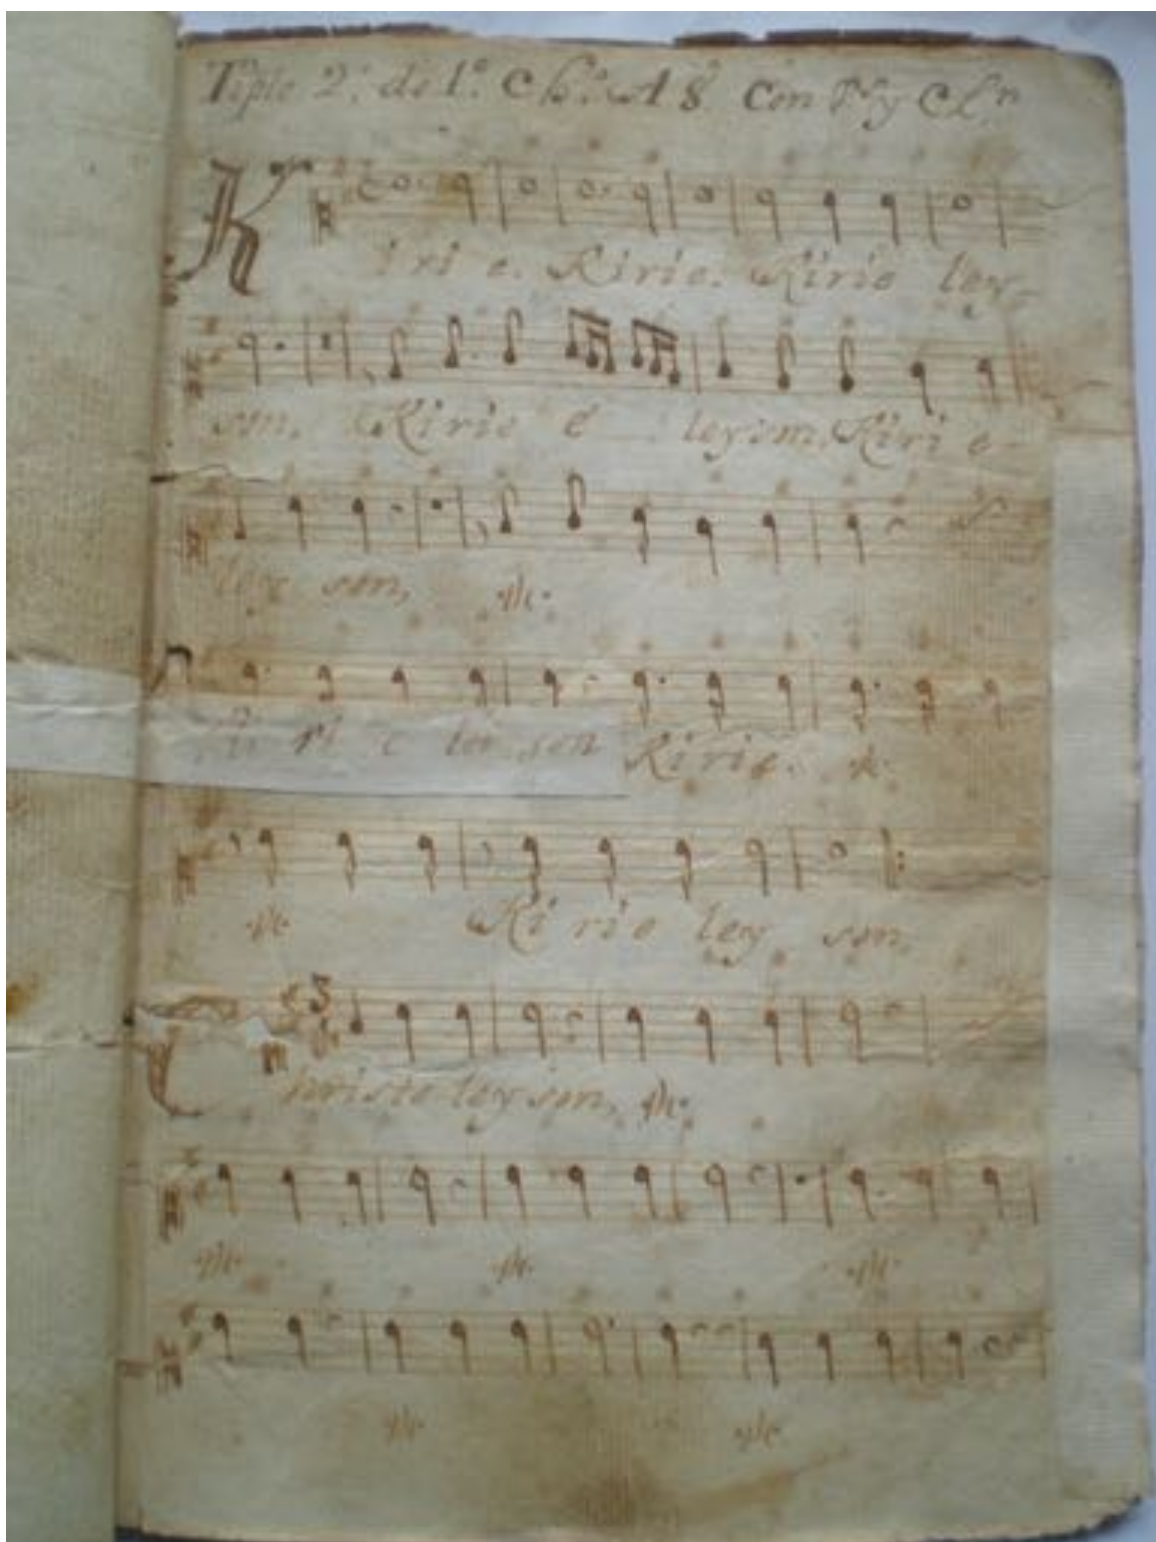 Tiple 2.º de 1.º Ch.º A 8 Con V.s y Cl.n
Kirie. Kirie. Kirie ley-
son, Kirie e leyson, Kiri e-
ley son, &c.
Ki ri e lei son Kirie. &c.
&c Ki rie ley son,
3
Christe leyson, &c.
&c. &c. &c.
&c &c.